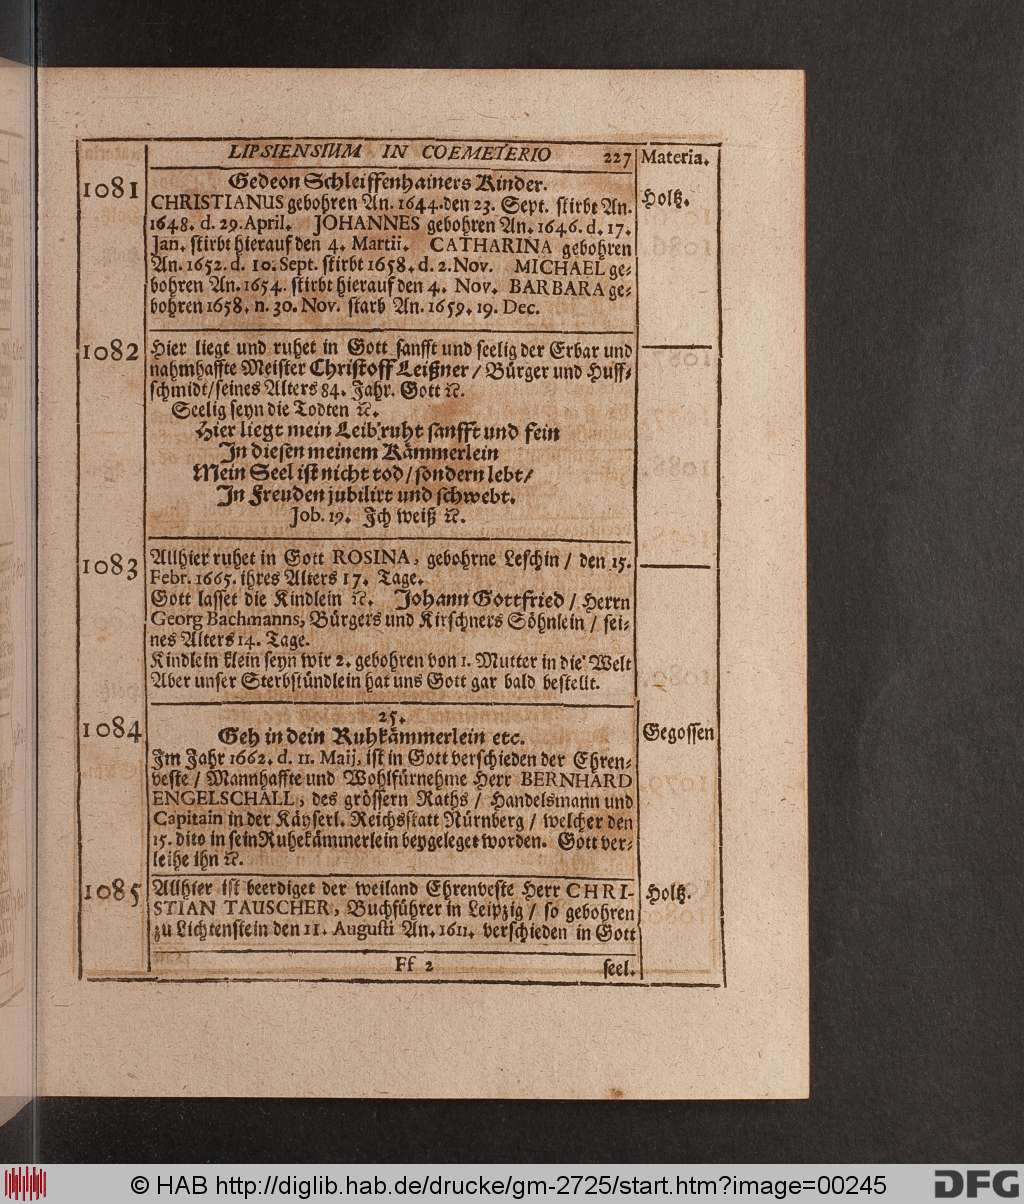 LIPSIENSIUM IN COEMETERIO 227 Materia.
1081 Gedeon Schleiffenhainers Kinder.
CHRISTIANUS gebohren An. 1644. den 23. Sept. stirbt An. Holtz.
1648. d. 29. April. JOHANNES gebohren An. 1646. d. 17.
Jan. stirbt hierauf den 4. Martii. CATHARINA gebohren
An. 1652. d. 10. Sept. stirbt 1658. d. 2. Nov. MICHAEL ge-
bohren An. 1654. stirbt hierauf den 4. Nov. BARBARA ge-
bohren 1658. n. 30. Nov. starb An. 1659. 19. Dec.
1082 Hier liegt und ruhet in Gott sanfft und seelig der Erbar und
nahmhaffte Meister Christoff Leißner / Bürger und Huff-
schmidt / seines Alters 84. Jahr. Gott ꝛc.
Seelig seyn die Todten ꝛc.
Hier liegt mein Leib'ruht sanfft und fein
In diesen meinem Kämmerlein
Mein Seel ist nicht tod / sondern lebt /
In Freuden jubilirt und schwebt.
Job. 19. Ich weiß ꝛc.
1083 Allhier ruhet in Gott ROSINA, gebohrne Leschin / den 15.
Febr. 1665. ihres Alters 17. Tage.
Gott lasset die Kindlein ꝛc. Johann Gottfried / Herrn
Georg Bachmanns, Bürgers und Kirschners Söhnlein / sei-
nes Alters 14. Tage.
Kindlein klein seyn wir 2. gebohren von 1. Mutter in die Welt
Aber unser Sterbstündlein hat uns Gott gar bald bestellt.
25.
1084 Geh in dein Ruhkämmerlein etc. Gegossen
Im Jahr 1662. d. 11. Maij, ist in Gott verschieden der Ehren-
veste / Mannhaffte und Wohlfürnehme Herr BERNHARD
ENGELSCHALL, des grössern Raths / Handelsmann und
Capitain in der Käyserl. Reichsstatt Nürnberg / welcher den
15. dito in sein Ruhekämmerlein beygeleget worden. Gott ver-
leihe ihn ꝛc.
1085 Allhier ist beerdiget der weiland Ehrenveste Herr CHRI- Holtz.
STIAN TAUSCHER, Buchführer in Leipzig / so gebohren
zu Lichtenstein den 11. Augusti An. 1611. verschieden in Gott
Ff 2 seel.
© HAB http://diglib.hab.de/drucke/gm-2725/start.htm?image=00245
DFG